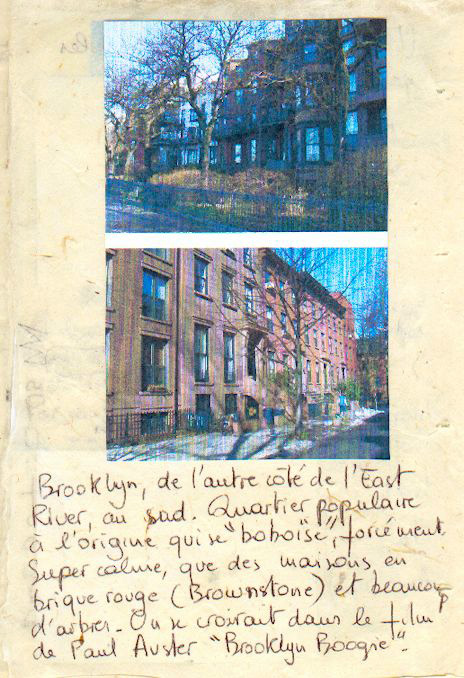 Brooklyn, de l'autre côté de l'East
River, au sud. Quartier populaire
à l'origine qui se "boboïse", forcément.
Super calme, que des maisons en
brique rouge (Brownstone) et beaucoup
d'arbres. On se croirait dans le film
de Paul Auster "Brooklyn Boogie".